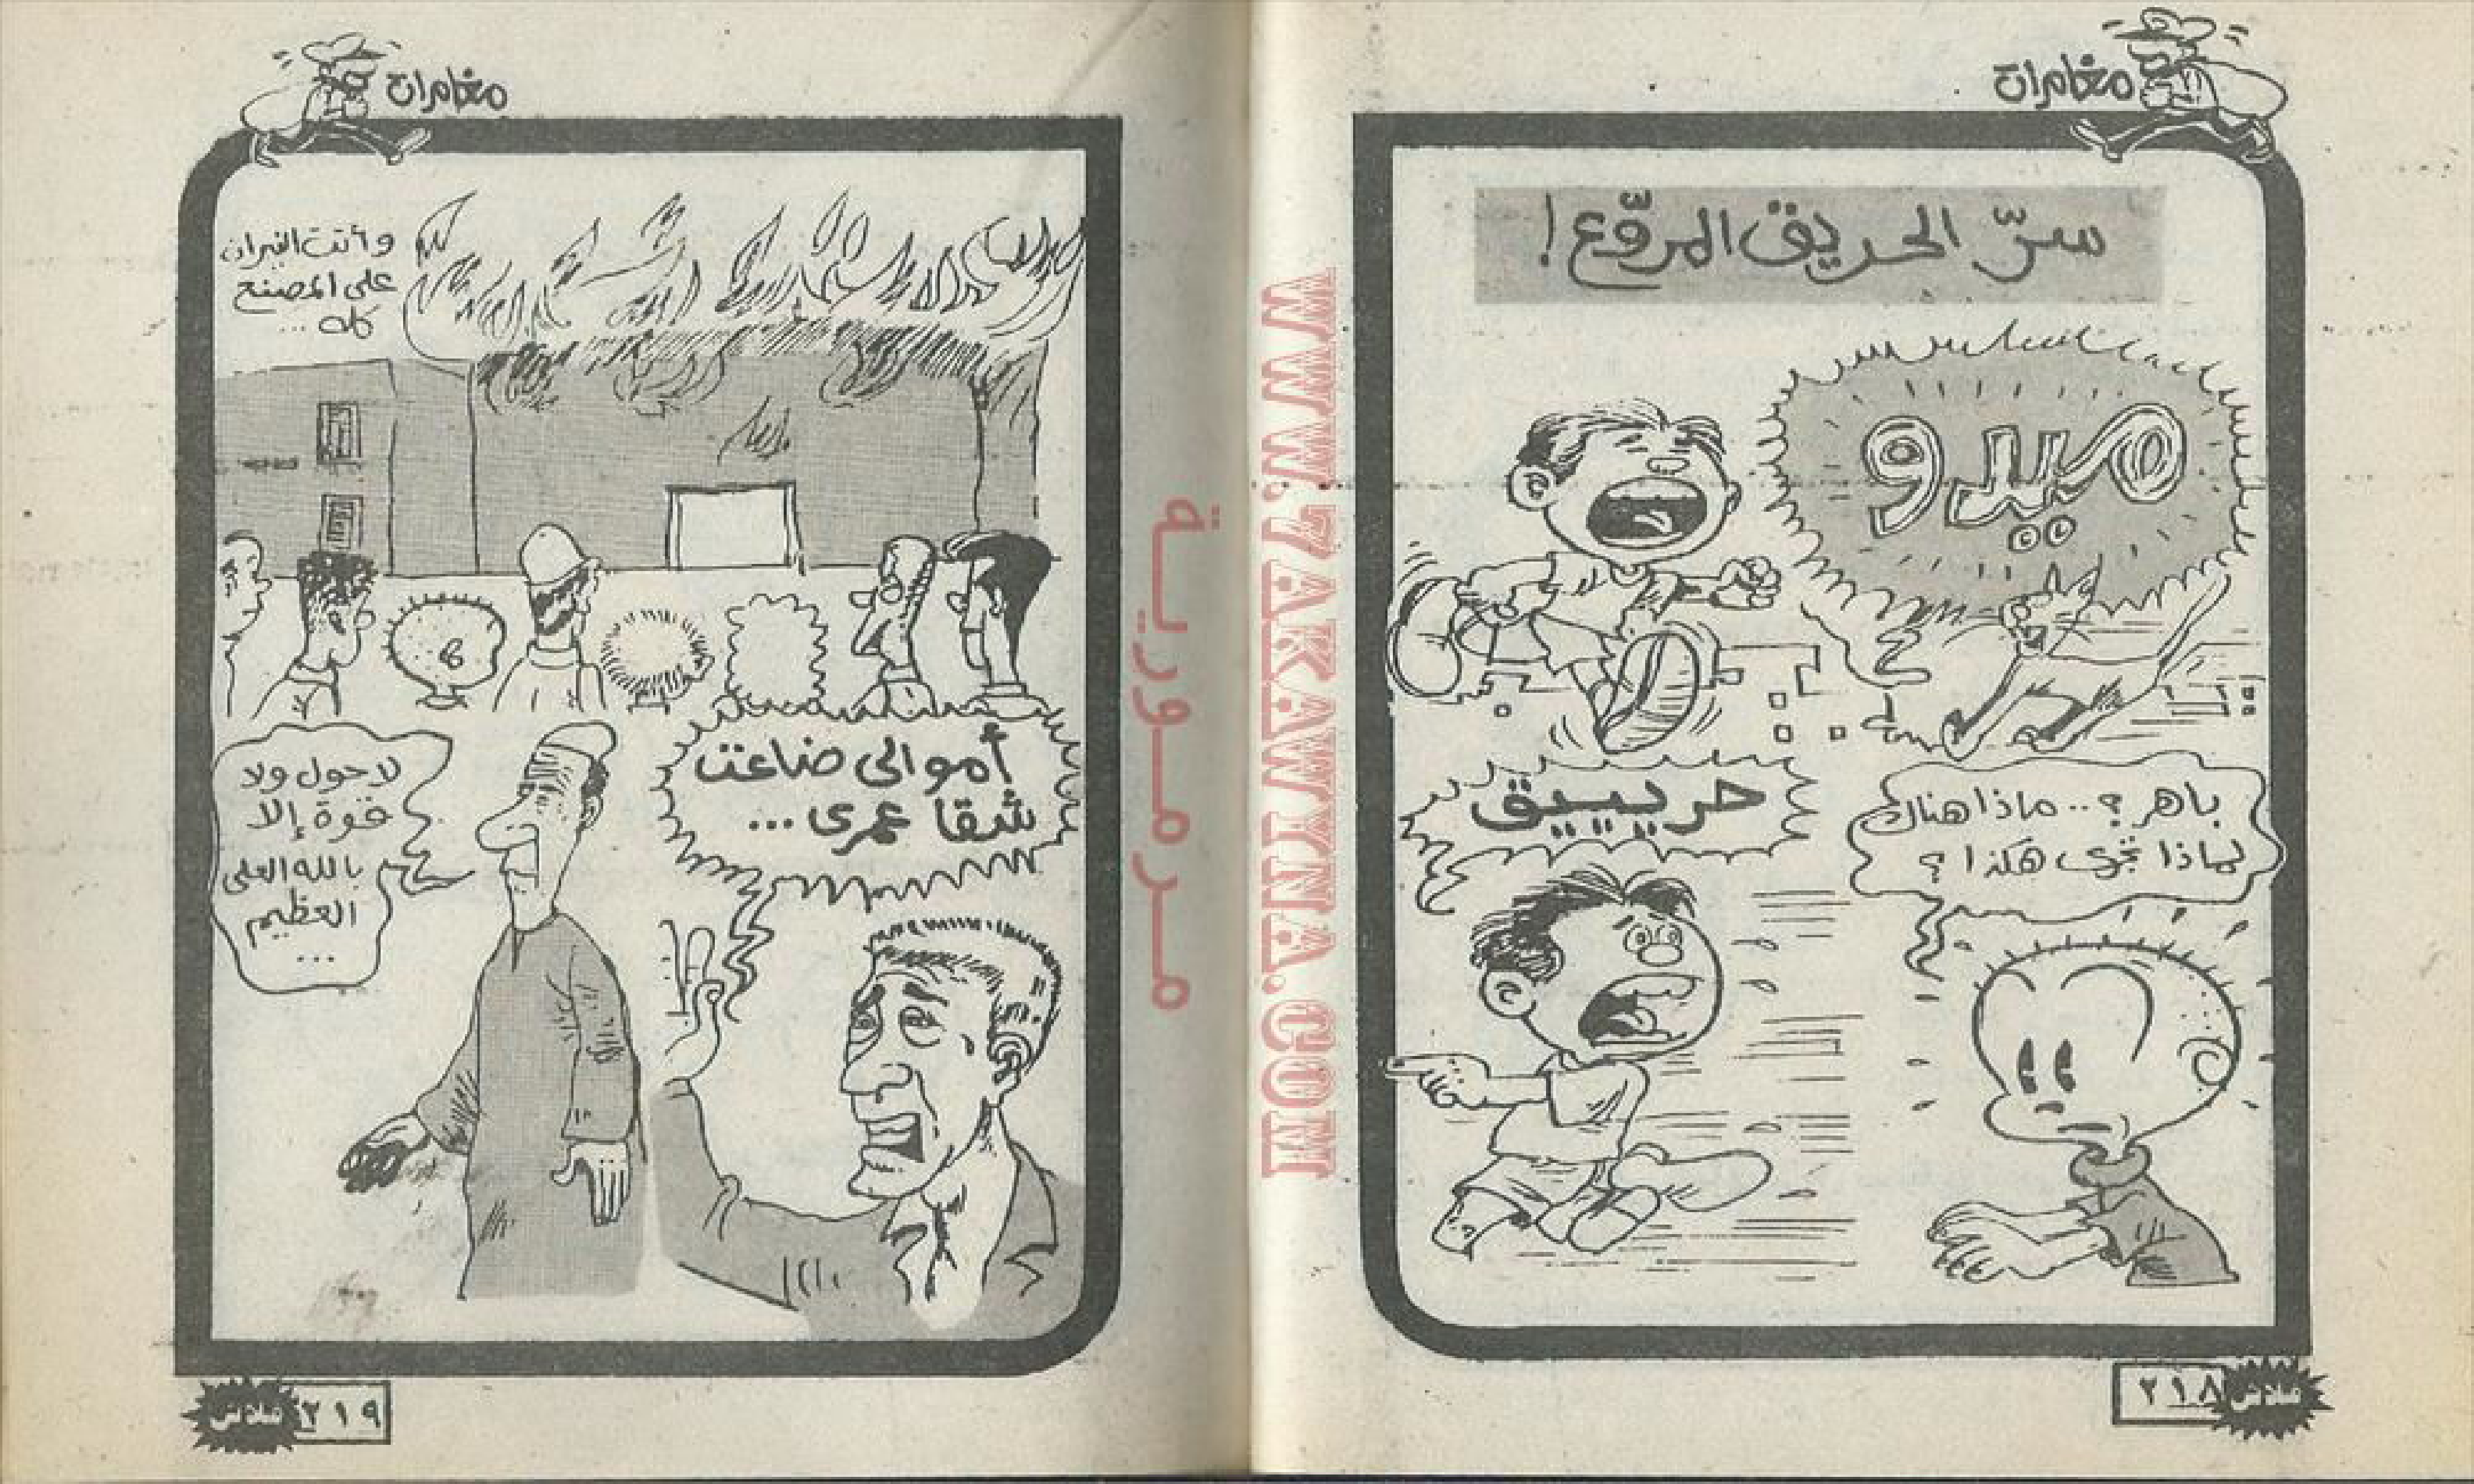 مغامرات
سرّ الحريق المروّع!
ميدو
باهر؟.. ماذا هناك
لماذا تجرى هكذا؟
حريييق
٢١٨ فلاش
WWW.7AKAWINA.COM
مرمورية
مغامرات
وأتت النيران
على المصنع
كله...
أموالى ضاعت
شقا عمرى...
لا حول ولا
قوة إلا
بالله العلى
العظيم
...
٢١٩ فلاش